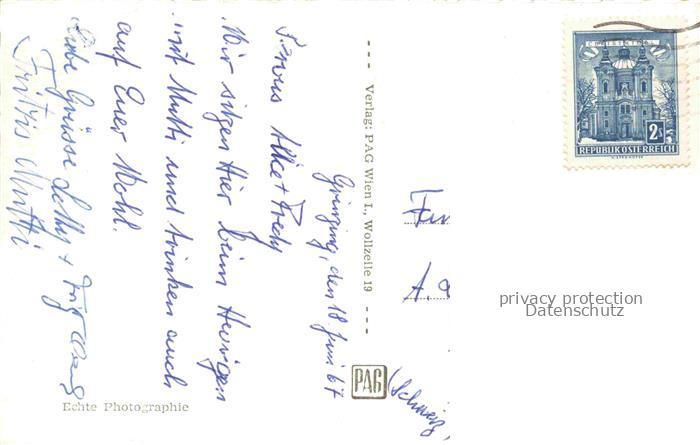 Grinzing, den 18. Juni 67
Servus Alke + Fredy
Wir sitzen hier beim Heurigen
mit Mutti und trinken auch
auf Euer Wohl.
Liebe Grüsse
Fritzis Mutti
Echte Photographie
Verlag: PAG Wien I., Wollzeile 19
PAG
(Schweiz)
CHRISTKINDL
2S
REPUBLIK ÖSTERREICH
privacy protection
Datenschutz